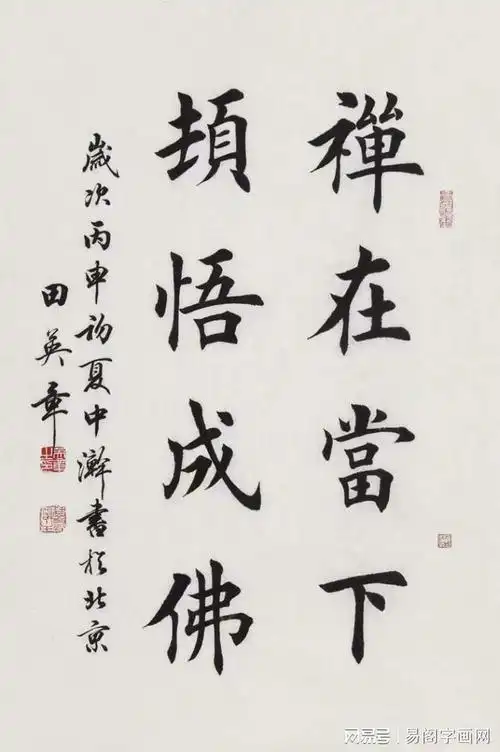 禪在當下
頓悟成佛
歲次丙申初夏中澣書於北京
田英章
网易号 | 易阁字画网